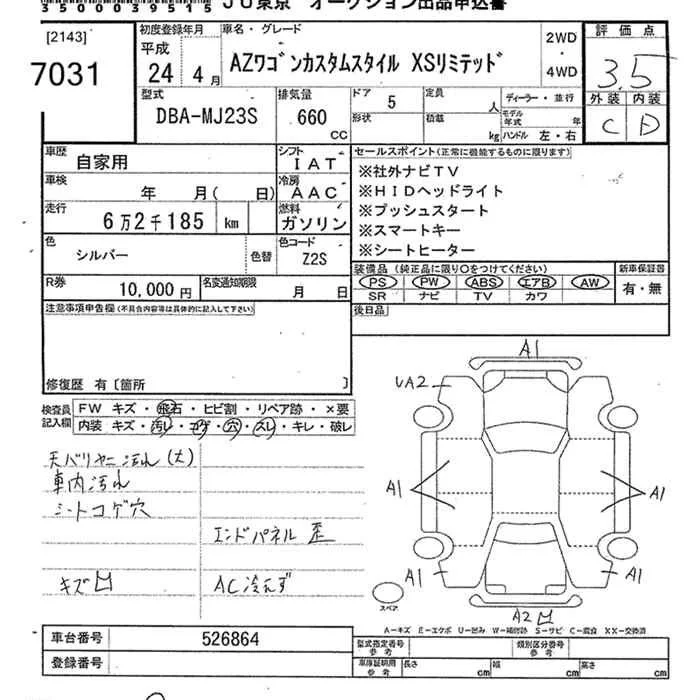 350003951 5 JU東京 オークション出品申込書
[2143]
7031
初度登録年月
平成
24年4月
車名・グレード
AZワゴンカスタムスタイル XSリミテッド
2WD
・
4WD
評価点
3.5
外装 内装
C D
型式
DBA-MJ23S
排気量
660
CC
ドア
5
形状
定員
人
積載
kg
ディーラー・並行
モデル年式 年
ハンドル 左・右
車歴
自家用
シフト
IAT
車検
年 月( 日)
冷房
AAC
走行
6万2千185 km
燃料
ガソリン
色
シルバー
色替
色コード
Z2S
R券
10,000円
名変通知期限
月 日
セールスポイント(正常に機能するものに限ります)
※社外ナビTV
※HIDヘッドライト
※プッシュスタート
※スマートキー
※シートヒーター
装備品 (純正品に限り○をつけてください)
PS PW ABS エアB AW
SR ナビ TV カワ
新車保証書
有・無
後日品
注意事項申告欄(不具合内容等は具体的に記入して下さい)
修復歴 有〔箇所 〕
検査員
記入欄
FW キズ・飛石・ヒビ割・リペア跡・×要
内装 キズ・汚レ・コゲ・穴・スレ・キレ・破レ
天バリヤニ汚れ(大)
車内汚れ
シートコゲ穴
エンドパネル歪
キズ凹
AC冷えず
A1
UA2
A1
A1
A1
A1
A2凹
スペア
A-キズ E-エクボ U-凹み W-補修跡 S-サビ C-腐食 XX-交換済
車台番号
526864
登録番号
型式指定番号
参考
類別区分番号
参考
車庫証明用
参考
長さ cm
幅 cm
高さ cm